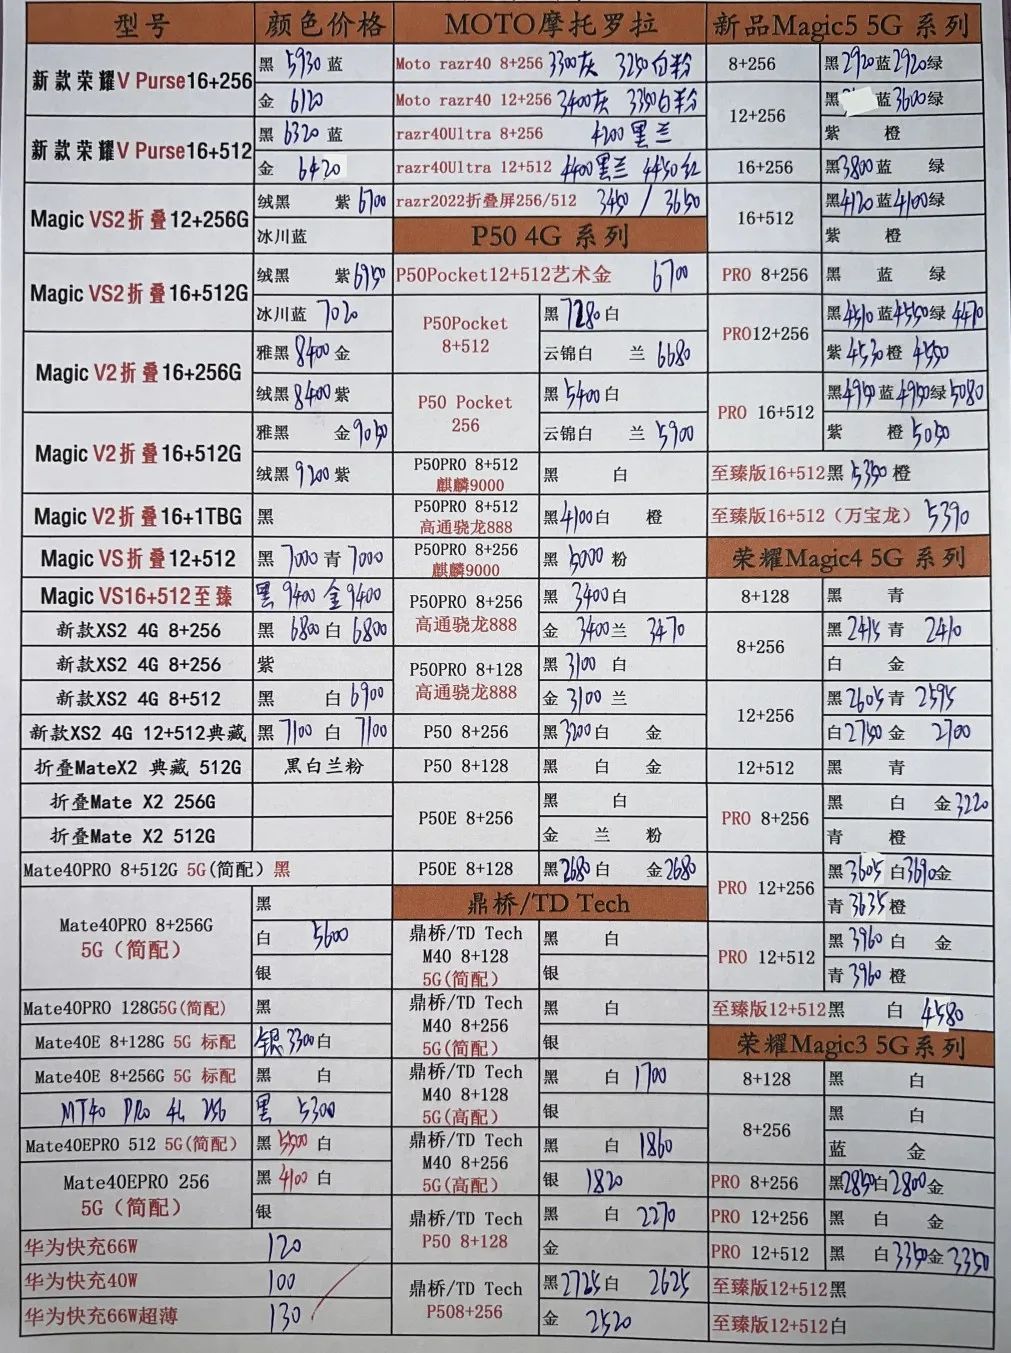 型号 颜色价格
新款荣耀V Purse16+256 黑 5930 蓝
金 6120
新款荣耀V Purse16+512 黑 6320 蓝
金 6420
Magic VS2折叠12+256G 绒黑 紫 6700
冰川蓝
Magic VS2折叠16+512G 绒黑 紫 6950
冰川蓝 7020
Magic V2折叠16+256G 雅黑 8400 金
绒黑 8400 紫
Magic V2折叠16+512G 雅黑 金 9050
绒黑 9200 紫
Magic V2折叠16+1TBG 黑
Magic VS折叠12+512 黑 7000 青 7000
Magic VS16+512至臻 黑 9400 金 9400
新款XS2 4G 8+256 黑 6800 白 6800
新款XS2 4G 8+256 紫
新款XS2 4G 8+512 黑 白 6900
新款XS2 4G 12+512典藏 黑 7100 白 7100
折叠MateX2 典藏 512G 黑白兰粉
折叠Mate X2 256G
折叠Mate X2 512G
Mate40PRO 8+512G 5G(简配)黑
Mate40PRO 8+256G
5G(简配)
黑
白 5600
银
Mate40PRO 128G5G(简配) 黑
Mate40E 8+128G 5G 标配 银 3300 白
Mate40E 8+256G 5G 标配 黑 白
MT40 PRO 4G 256 黑 5300
Mate40EPRO 512 5G(简配) 黑 5500 白
Mate40EPRO 256
5G(简配)
黑 4100 白
银
华为快充66W 120
华为快充40W 100
华为快充66W超薄 130
MOTO摩托罗拉
Moto razr40 8+256 3300灰 3250白粉
Moto razr40 12+256 3400灰 3350白粉
razr40Ultra 8+256 4200黑兰
razr40Ultra 12+512 4400黑兰 4450红
razr2022折叠屏256/512 3450 / 3650
P50 4G 系列
P50Pocket12+512艺术金 6700
P50Pocket
8+512
黑 7280 白
云锦白 兰 6680
P50 Pocket
256
黑 5400 白
云锦白 兰 5900
P50PRO 8+512
麒麟9000
黑 白
P50PRO 8+512
高通骁龙888
黑 4100 白 橙
P50PRO 8+256
麒麟9000
黑 5000 粉
P50PRO 8+256
高通骁龙888
黑 3400 白
金 3400 兰 3470
P50PRO 8+128
高通骁龙888
黑 3100 白
金 3100 兰
P50 8+256 黑 3200 白 金
P50 8+128 黑 白 金
P50E 8+256 黑 白
金 兰 粉
P50E 8+128 黑 2680 白 金 2680
鼎桥/TD Tech
鼎桥/TD Tech
M40 8+128
5G(简配)
黑 白
银
鼎桥/TD Tech
M40 8+256
5G(简配)
黑 白
银
鼎桥/TD Tech
M40 8+128
5G(高配)
黑 白 1700
银
鼎桥/TD Tech
M40 8+256
5G(高配)
黑 白 1860
银 1820
鼎桥/TD Tech
P50 8+128
黑 白 2270
金
鼎桥/TD Tech
P508+256
黑 2725 白 2625
金 2520
新品Magic5 5G 系列
8+256 黑 2920 蓝 2920 绿
12+256 黑 蓝 3600 绿
紫 橙
16+256 黑 3800 蓝 绿
16+512 黑 4120 蓝 4100 绿
紫 橙
PRO 8+256 黑 蓝 绿
PRO12+256 黑 4510 蓝 4550 绿 4470
紫 4530 橙 4550
PRO 16+512 黑 4950 蓝 4950 绿 5080
紫 橙 5050
至臻版16+512黑 5350 橙
至臻版16+512(万宝龙) 5390
荣耀Magic4 5G 系列
8+128 黑 青
8+256 黑 2415 青 2410
白 金
12+256 黑 2605 青 2595
白 2750 金 2700
12+512 黑 青
PRO 8+256 黑 白 金 3220
青 橙
PRO 12+256 黑 3605 白 3690 金
青 3635 橙
PRO 12+512 黑 3960 白 金
青 3960 橙
至臻版12+512黑 白 4580
荣耀Magic3 5G系列
8+128 黑 白
8+256 黑 白
蓝 金
PRO 8+256 黑 2850 白 2800 金
PRO 12+256 黑 白 金
PRO 12+512 黑 白 3350 金 3350
至臻版12+512黑
至臻版12+512白